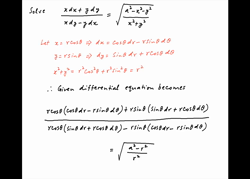 Solve (x dx + y dy)/(x dy - y dx) = √((a² - x² - y²)/(x² + y²))
Let x = r cosθ ⇒ dx = cosθ dr - r sinθ dθ
y = r sinθ ⇒ dy = sinθ dr + r cosθ dθ
x² + y² = r² cos²θ + r² sin²θ = r²
∴ Given differential equation becomes
(r cosθ (cosθ dr - r sinθ dθ) + r sinθ (sinθ dr + r cosθ dθ))/(r cosθ (sinθ dr + r cosθ dθ) - r sinθ (cosθ dr - r sinθ dθ))
= √((a² - r²)/r²)